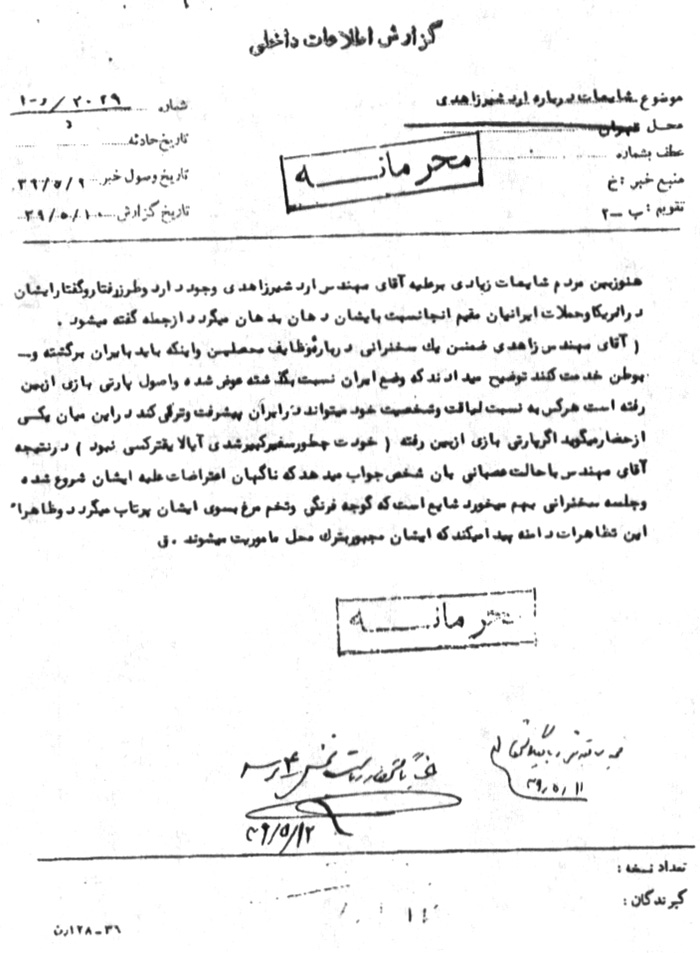 گزارش اطلاعات داخلی
موضوع شایعات درباره اردشیر زاهدی
شماره ۲۰۲۹/ر-۱
د
محل تهران
تاریخ حادثه
عطف بشماره
محرمانه
تاریخ وصول خبر ۳۹/۵/۹
منبع خبر : خ
تاریخ گزارش ۳۹/۵/۱۰
تقویم : ب-۲
هنوزبین مردم شایعات زیادی برعلیه آقای مهندس اردشیرزاهدی وجود دارد وطرزرفتاروگفتارایشان
درامریکاوحملات ایرانیان مقیم انجانسبت بایشان دهان بدهان میگردد ازجمله گفته میشود .
( آقای مهندس زاهدی ضمن یك سخنرانی درباره وظایف محصلین واینکه باید بایران برگشته و-
بوطن خدمت کنند توضیح میدادند که وضع ایران نسبت بگذشته عوض شده واصول پارتی بازی ازبین
رفته است هرکس به نسبت لیاقت وشخصیت خود میتواند درایران پیشرفت وترقی کند دراین میان یکی
ازحضارمیگوید اگرپارتی بازی ازبین رفته ( خودت چطورسفیرکبیرشدی آیالایقترکسی نبود ) درنتیجه
آقای مهندس باحالت عصبانی بان شخص جواب میدهد که ناگهان اعتراضات علیه ایشان شروع شده
وجلسه سخنرانی بهم میخورد شایع است که گوجه فرنگی وتخم مرغ بسوی ایشان پرتاب میگردد وظاهراً
این تظاهرات دامنه پیدا میکند که ایشان مجبوربترك محل ماموریت میشوند . ق
محرمانه
۳۹/۵/۱۱
۳۹/۵/۱۲
تعداد نسخه :
گیرندگان :
۳۶-۱۲۸رن